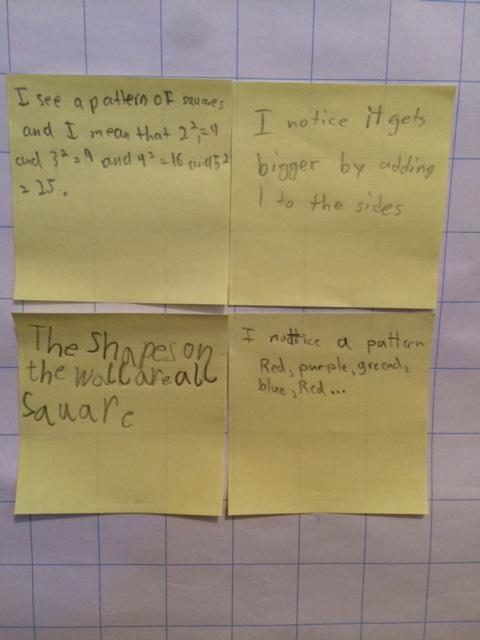 I see a pattern of squares
and I mean that 2²=4
and 3²=9 and 4²=16 and 5²
=25.
I notice it gets
bigger by adding
1 to the sides
The shapes on
the wall are all
Square
I nottice a pattern
Red, purple, greend,
blue, Red...